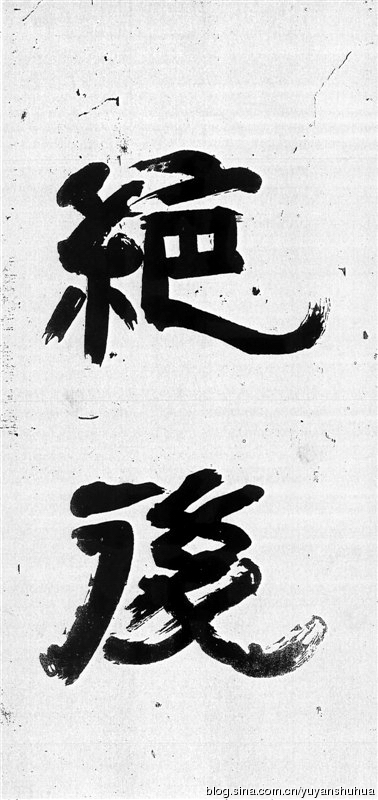 絶後
blog.sina.com.cn/yuyanshuhua